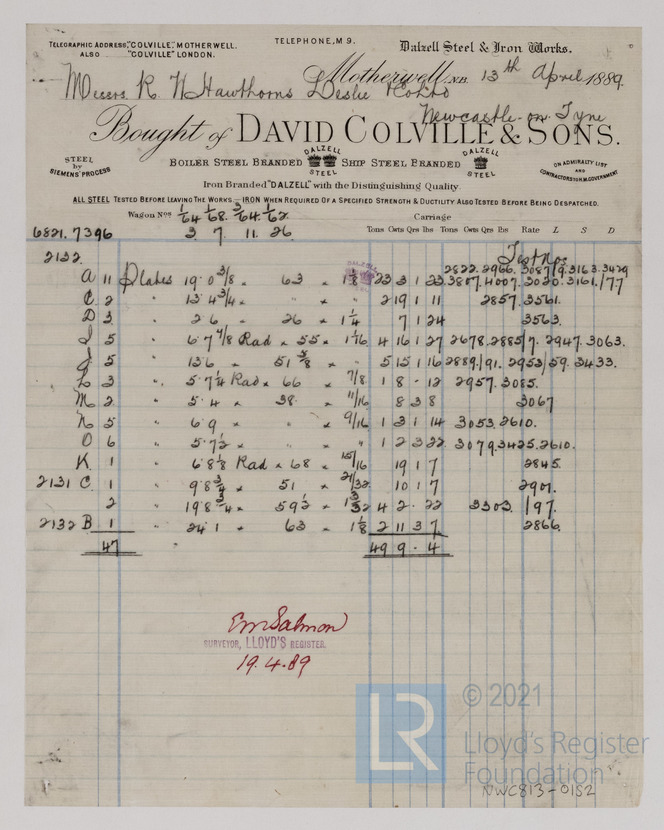 TELEGRAPHIC ADDRESS, "COLVILLE", MOTHERWELL.
ALSO "COLVILLE" LONDON.
TELEPHONE, M 9.
Dalzell Steel & Iron Works.
Motherwell, N.B. 13th April 1889.
Messrs R W Hawthorns Leslie
Newcastle-on-Tyne
Bought of DAVID COLVILLE & SONS.
STEEL by SIEMENS' PROCESS
BOILER STEEL BRANDED DALZELL STEEL SHIP STEEL BRANDED DALZELL STEEL
ON ADMIRALTY LIST AND CONTRACTORS TO H.M. GOVERNMENT
Iron Branded "DALZELL" with the Distinguishing Quality.
ALL STEEL TESTED BEFORE LEAVING THE WORKS.—IRON WHEN REQUIRED OF A SPECIFIED STRENGTH & DUCTILITY ALSO TESTED BEFORE BEING DESPATCHED.
Wagon Nos 1/64 1/68. 3/64. 1/62. Carriage
6821.7396 3 7. 11. 26 Tons Cwts Qrs lbs Tons Cwts Qrs lbs Rate L S D
2132. Test Nos
2822. 2966. 3087/9. 3163. 3429
A 11 Plates 19.0 3/8 × 63 × 1 1/8 23 3 1 23 3807. 4007. 3020. 3161./77
C 2 " 13.4 3/4 × " × " 2 19 1 11 2857. 3561.
D 3 " 2 6 × 26 × 1 1/4 7 1 24 3563.
I 5 " 6.7 7/8 Rad × 55 × 1 1/16 4 16 1 27 2678. 2885/7. 2947. 3063.
J 5 " 13 6 × 51 3/8 × " 5 15 1 16 2889/91. 2953/59. 3433.
L 3 " 5.7 1/4 Rad × 66 × 7/8 1 8 - 12 2957. 3085.
M 2 " 5.4 × 38 × 11/16 8 3 8 3067
N 5 " 6 9 × " × 9/16 1 3 1 14 3053. 2610.
O 6 " 5.7 1/2 × " × " 1 2 3 22 3079. 3425. 2610.
K 1 " 6.8 1/8 Rad × 68 × 15/16 19 1 7 2845.
2131 C. 1 " 9.8 3/4 × 51 × 21/32 10 1 7 2901.
2 " 19.8 3/4 × 59 1/2 × 1 3/32 4 2 - 22 3303. /97.
2132 B 1 " 24.1 × 63 × 1 1/8 2 11 3 7 2866.
47 49 9 - 4
E m Salmon
SURVEYOR, LLOYD'S REGISTER.
19.4.89
LR
© 2021
Lloyd's Register
Foundation
NWC813-0152